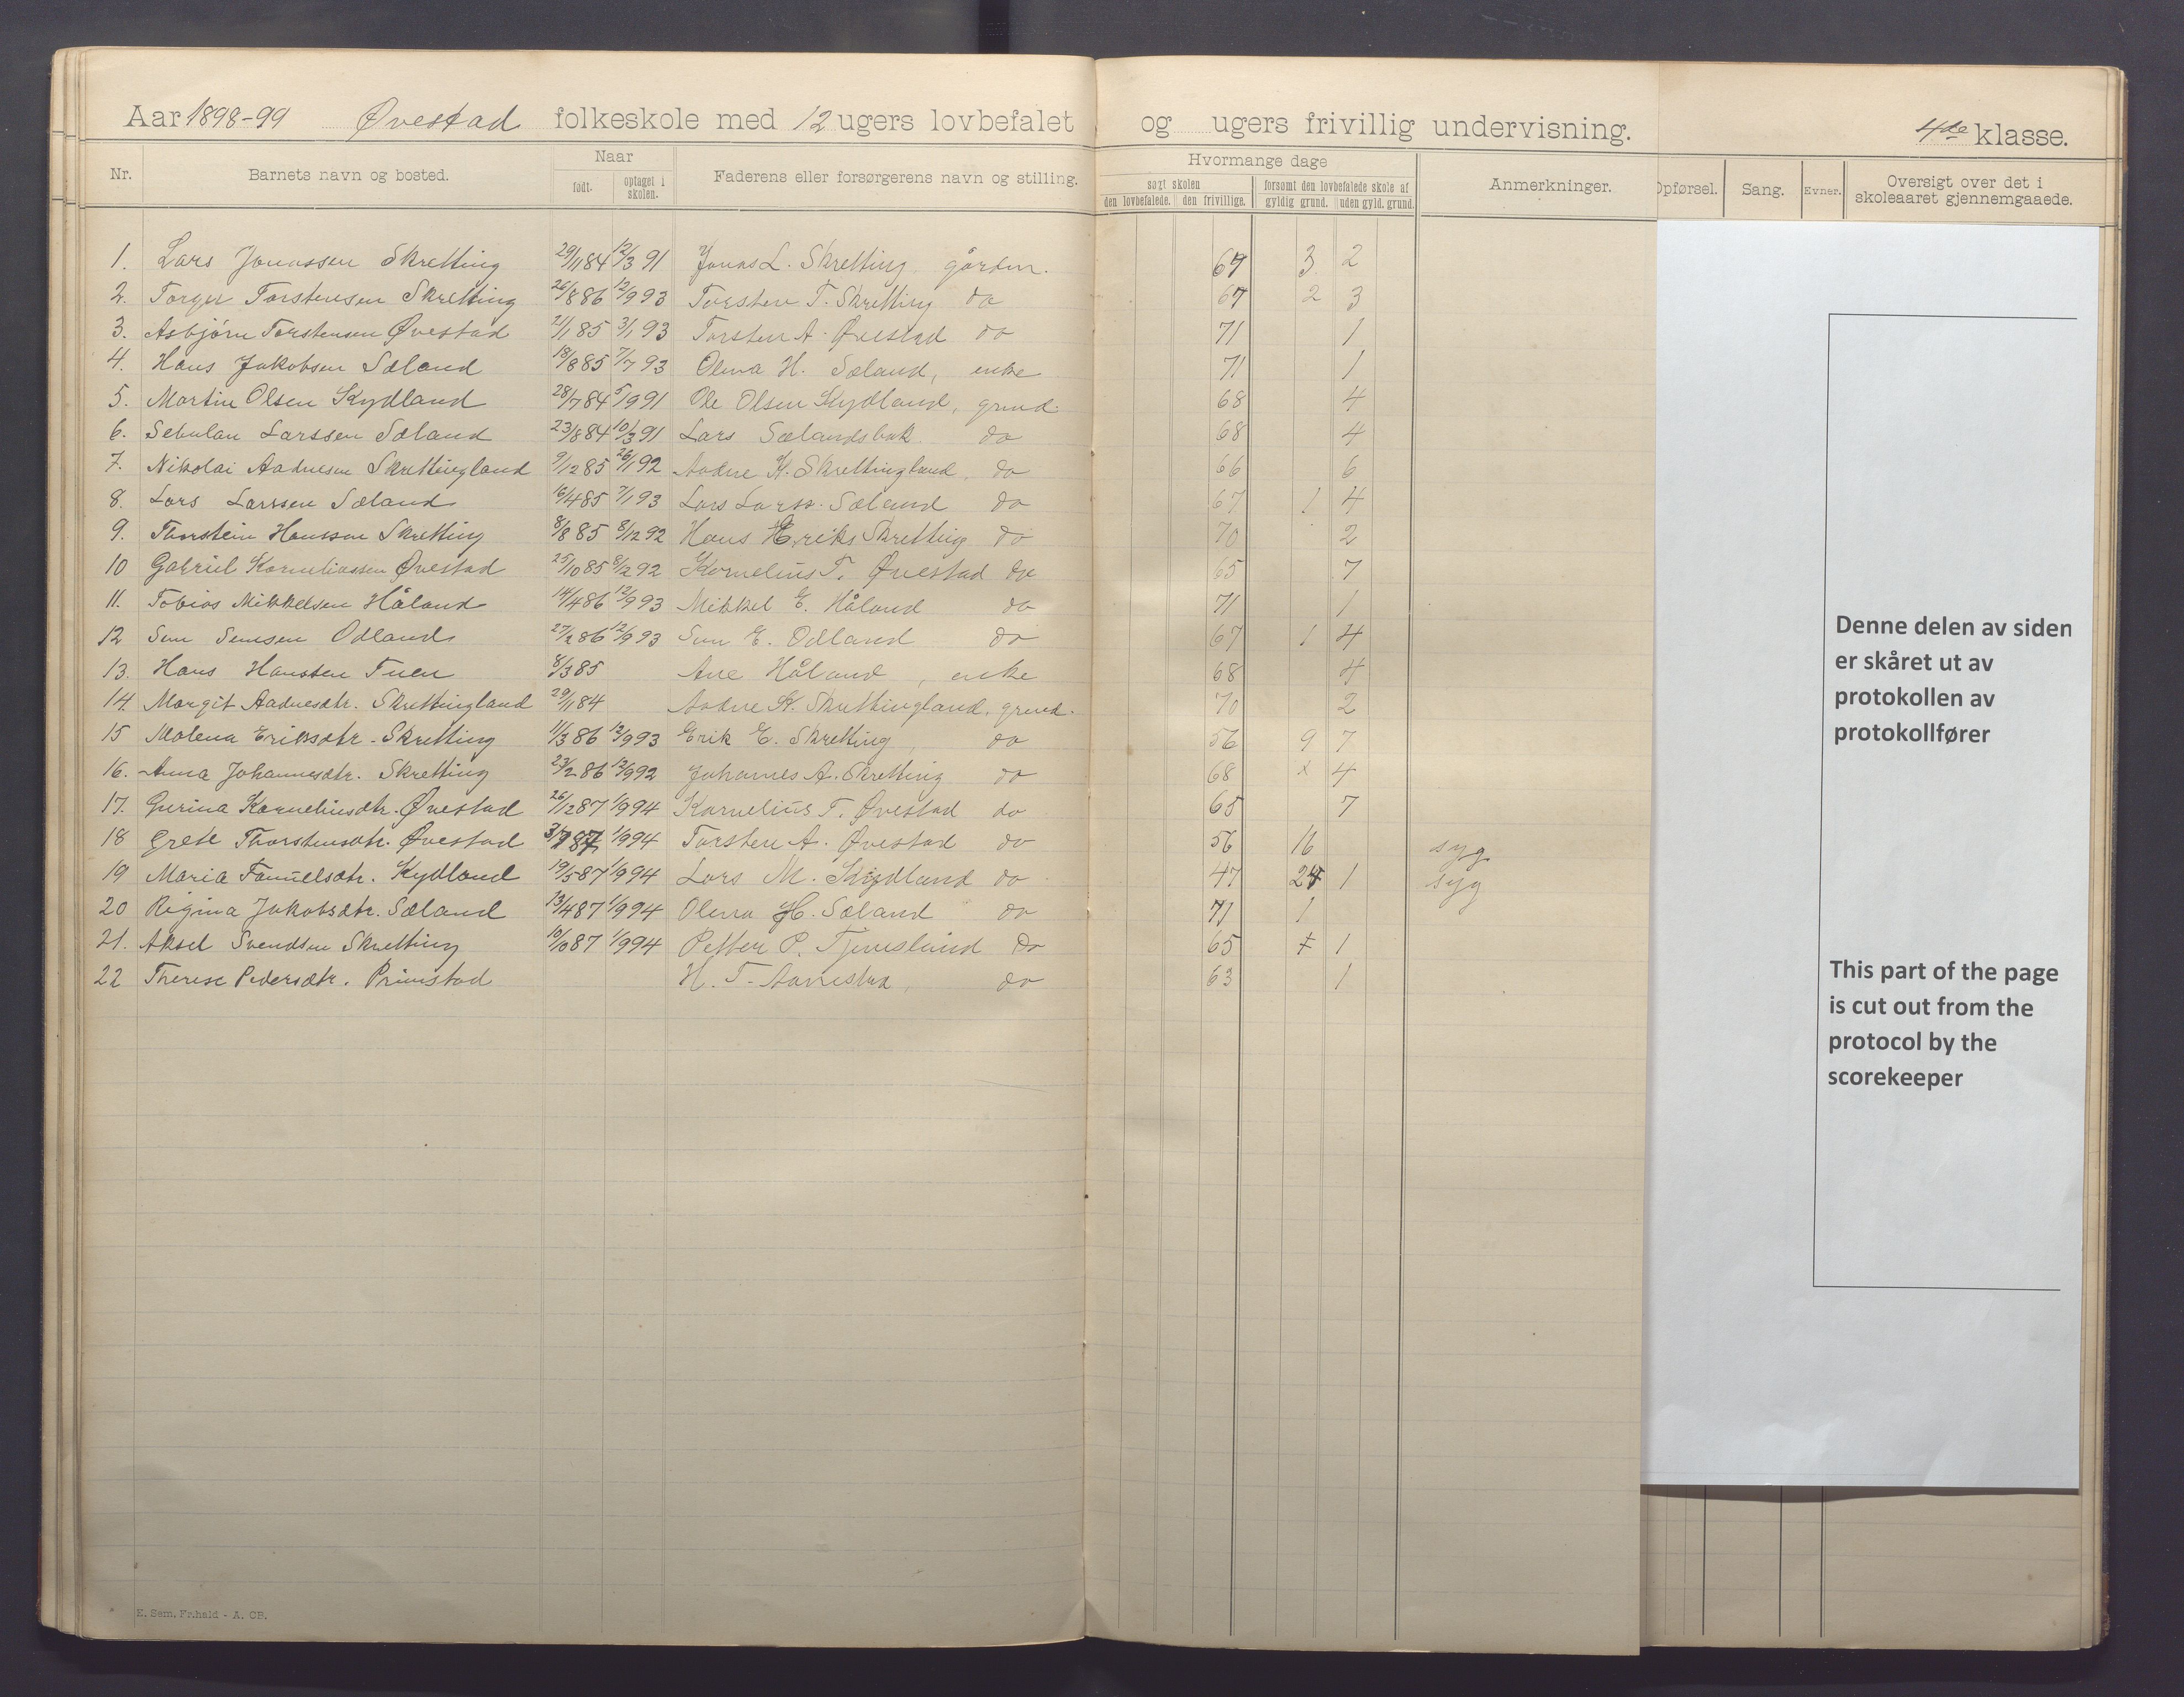 Aar 1898-99 Øvestad folkeskole med 12 ugers lovbefalet og ugers frivillig undervisning. 4de klasse.
Nr. Barnets navn og bosted. Naar født. optaget i skolen. Faderens eller forsørgerens navn og stilling. Hvormange dage søgt skolen den lovbefalede. den frivillige. forsømt den lovbefalede skole af gyldig grund. uden gyld. grund. Anmerkninger. Opførsel. Sang. Evner. Oversigt over det i skoleaaret gjennemgaaede.
1. Lars Jonassen Skretting 29/11 84 12/3 91 Jonas L. Skretting, gårdm. 67 3 2
2. Torger Torstensen Skretting 26/8 86 12/9 93 Torsten T. Skretting do 67 2 3
3. Asbjørn Torstensen Øvestad 21/1 85 3/1 93 Torsten A. Øvestad do 71 1
4. Hans Jakobsen Sæland 18/8 85 7/7 93 Olena H. Sæland, enke 71 1
5. Martin Olsen Kydland 28/7 84 5/9 91 Ole Olsen Kydland, grmd. 68 4
6. Sebulan Larssen Sæland 23/8 84 10/3 91 Lars Sælandsbak do 68 4
7. Nikolai Aadnesen Skrettingland 9/12 85 26/1 92 Aadne K. Skrettingland, do 66 6
8. Lars Larssen Sæland 16/4 85 7/1 93 Lars Larss. Sæland do 67 1 4
9. Thorstein Hanssen Skretting 8/8 85 8/12 92 Hans Eriks Skretting do 70 2
10 Gabriel Korneliussen Øvestad 25/10 85 8/12 92 Kornelius T. Øvestad do 65 7
11. Tobias Mikkelsen Håland 14/4 86 12/9 93 Mikkel E. Håland do 71 1
12 Sem Semsen Odland 27/2 86 12/9 93 Sem E. Odland do 67 1 4
13. Hans Hansten Tuen 8/3 85 Ane Håland, enke 68 4
14 Margit Aadnesdtr. Skrettingland 29/1 84 Aadne K. Skrettingland, grmd. 70 2
15 Malena Eriksdtr. Skretting 11/3 86 12/9 93 Erik E. Skretting, do 56 9 7
16. Anna Johannesdtr. Skretting 23/2 86 12/9 92 Johannes A. Skretting do 68 x 4
17. Gurina Korneliusdtr. Øvestad 26/12 87 1/9 94 Kornelius T. Øvestad do 65 7
18 Grete Thorstensdtr. Øvestad 87 1/9 94 Torsten A. Øvestad do 56 16 syg
19 Maria Tanielsdtr. Kydland 19/5 87 1/9 94 Lars M. Kydland do 47 24 1 syg
20 Regina Jakobsdtr. Sæland 13/4 87 1/9 94 Olena H. Sæland do 71 1
21. Aksel Svendsen Skretting 10/10 87 1/9 94 Petter P. Tjemsland do 65 1
22 Therese Pedersdtr. Primstad H. T. Aarrestad, do 63 1
Denne delen av siden
er skåret ut av
protokollen av
protokollfører
This part of the page
is cut out from the
protocol by the
scorekeeper
E. Sem, Fr.hald - A. CB.